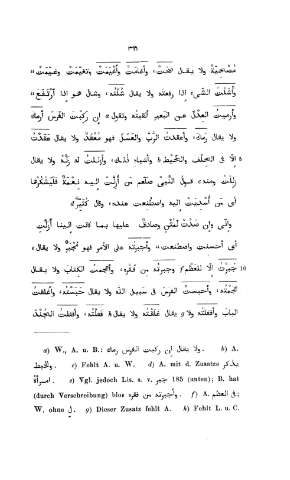 ٣٩٩
مُصْحِيَة ولا يقال صَحَتْ، وأغامت وأغيمت وتغيّمت وغيّمت"
وأشلتُ الشىء اذا رفعته ولا يقال شُلْتُه، وشال هو اذا ارتفع"
وأرميتُ العِدْل عن البعير ألقيته ولا يقال، إن ركبت الفرس أرماك
ولا يقال رماك، وأعقدتُ الرُّبّ والعسل فهو مُعْقَد ولا يقال عقدتُ
5 الّا فى الحلف والخيط b وأشباه ذلك، وأزللتُ له زَلّة ولا يقال
زللت ومنه، قول النبىّ صلعم من أُزِلَّتْ اليه نعمة فليشكرها
أى من أُسديت اليه واصطنعت عنده، وقال كُثَيِّر
وانّى وان صدّت لمُثْنٍ وصادق عليها بما كانت الينا أزلّت
أى أحسنت واصطنعت" وأجبرته على الأمر فهو مُجْبَر ولا يقال،
10 جبرتُ الّا للعظم f وجبرته من فقره، وأعجمتُ الكتاب ولا يقال
عجمته، وأحبستُ الفرس فى سبيل الله ولا يقال حبسته، وأغلقت
الباب وأقفلته ولا g يقال غلقته ولا يقال h قفلته، وأقفلت الجند
a) W., A. u. B.: ولا يقال إن ركبت الفرس رماك. b) A.
والخيط. c) Fehlt A. u. W. d) A. mit d. Zusatze يذكر
امرأة. e) Vgl. jedoch Lis. s. v. جبر 185 (unten); B. hat
(durch Verschreibung) blos وأجبرته من فقره. f) A. فى العظم;
W. ohne ل. g) Dieser Zusatz fehlt A. h) Fehlt L. u. C.